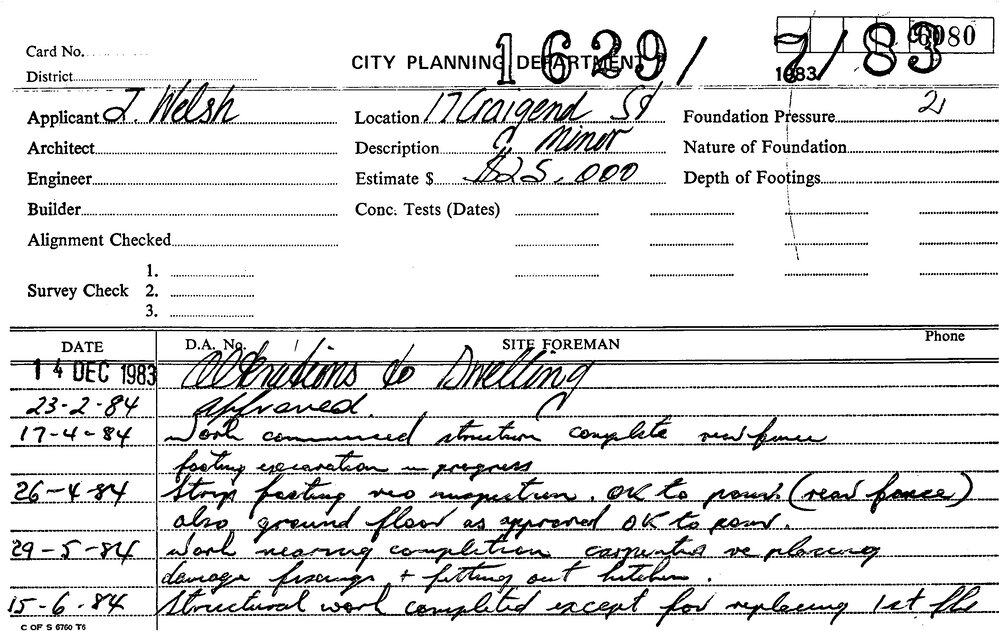 6080
Card No.
CITY PLANNING DEPARTMENT 1629/ 7/83
District
1983
Applicant J. Welsh Location 17 Craigend St Foundation Pressure 2
Architect Description Minor Nature of Foundation
Engineer Estimate $ $25,000 Depth of Footings
Builder Conc. Tests (Dates)
Alignment Checked
1.
Survey Check 2.
3.
DATE D.A. No. SITE FOREMAN Phone
14 DEC 1983 Alterations to Dwelling
23-2-84 approved.
17-4-84 Work commenced structure complete rear fence
footing excavation in progress
26-4-84 Strip footing reo inspection. OK to pour. (rear fence)
also ground floor as approved OK to pour.
29-5-84 Work nearing completion carpenters replacing
damage + fitting out kitchen.
15-6-84 Structural work completed except for replacing 1st flr
C OF S 6760 T6